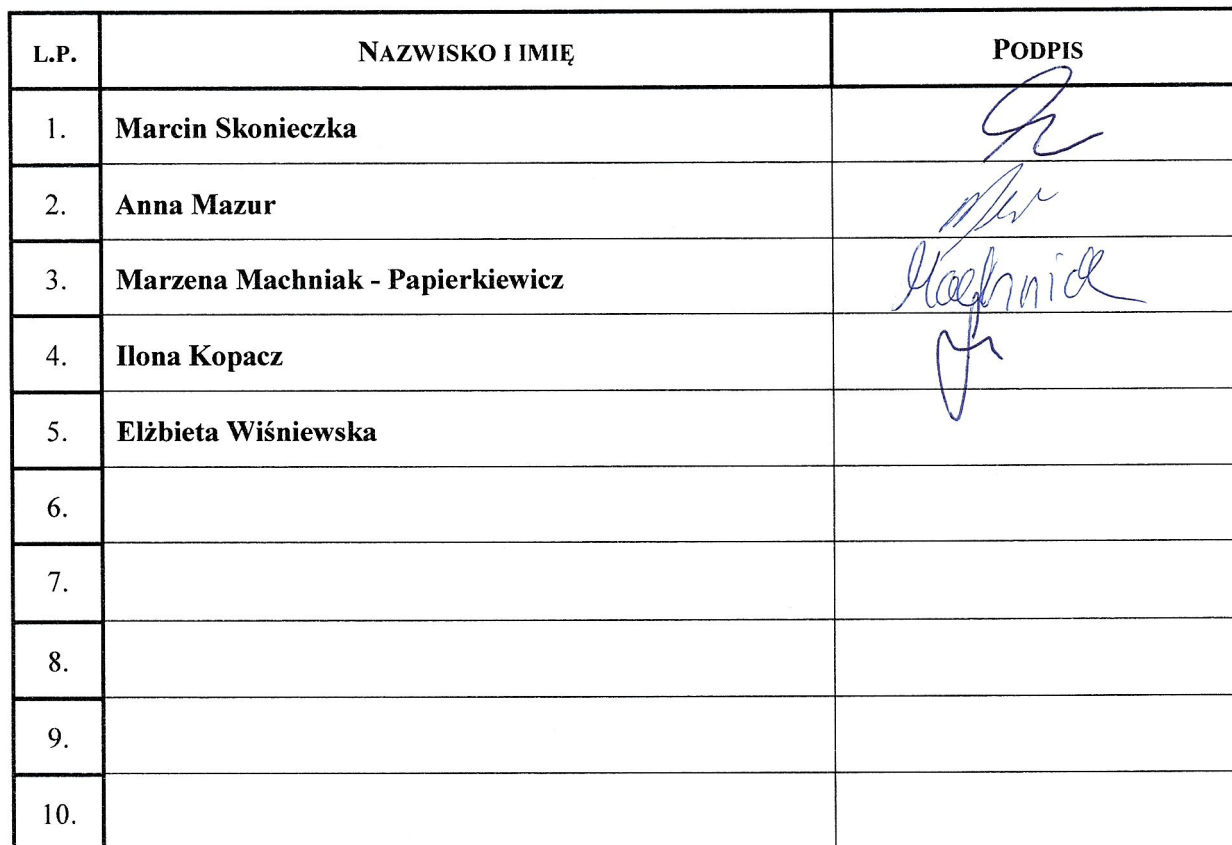 L.P. NAZWISKO I IMIĘ PODPIS
1. Marcin Skonieczka
2. Anna Mazur
3. Marzena Machniak - Papierkiewicz
4. Ilona Kopacz
5. Elżbieta Wiśniewska
6.
7.
8.
9.
10.